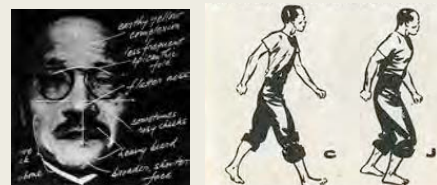 earthy yellow
complexion
less frequent
epicanthic
fold
flatter nose
sometimes
rosy cheeks
heavy beard
broader, shorter
face
bone
C
J